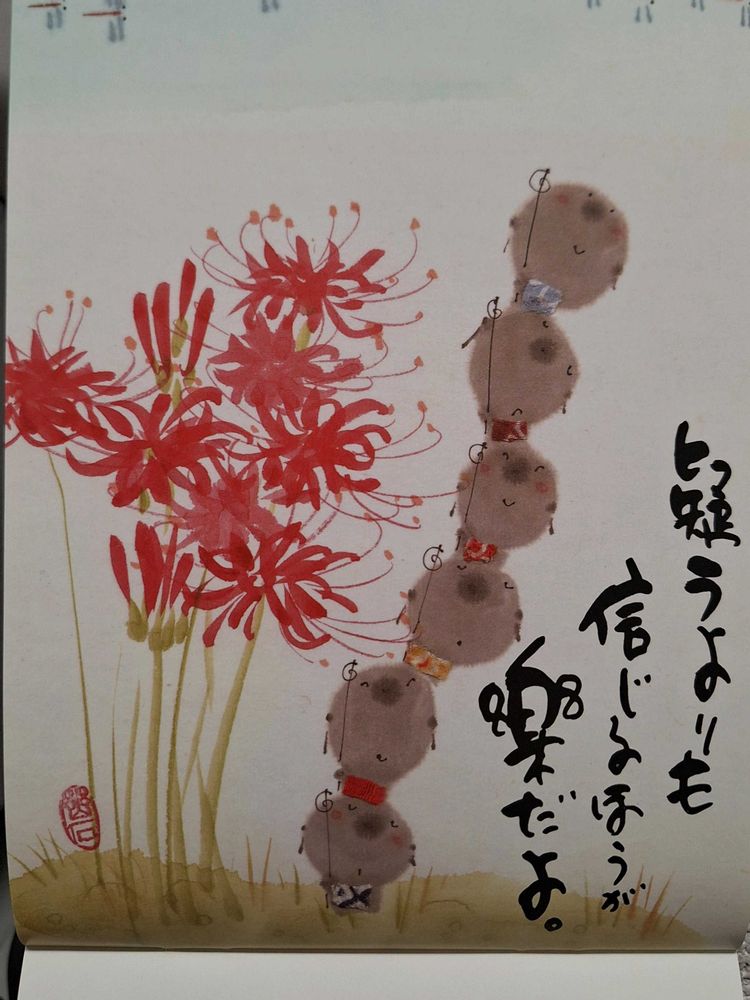 疑うよりも
信じるほうが
楽だよ。